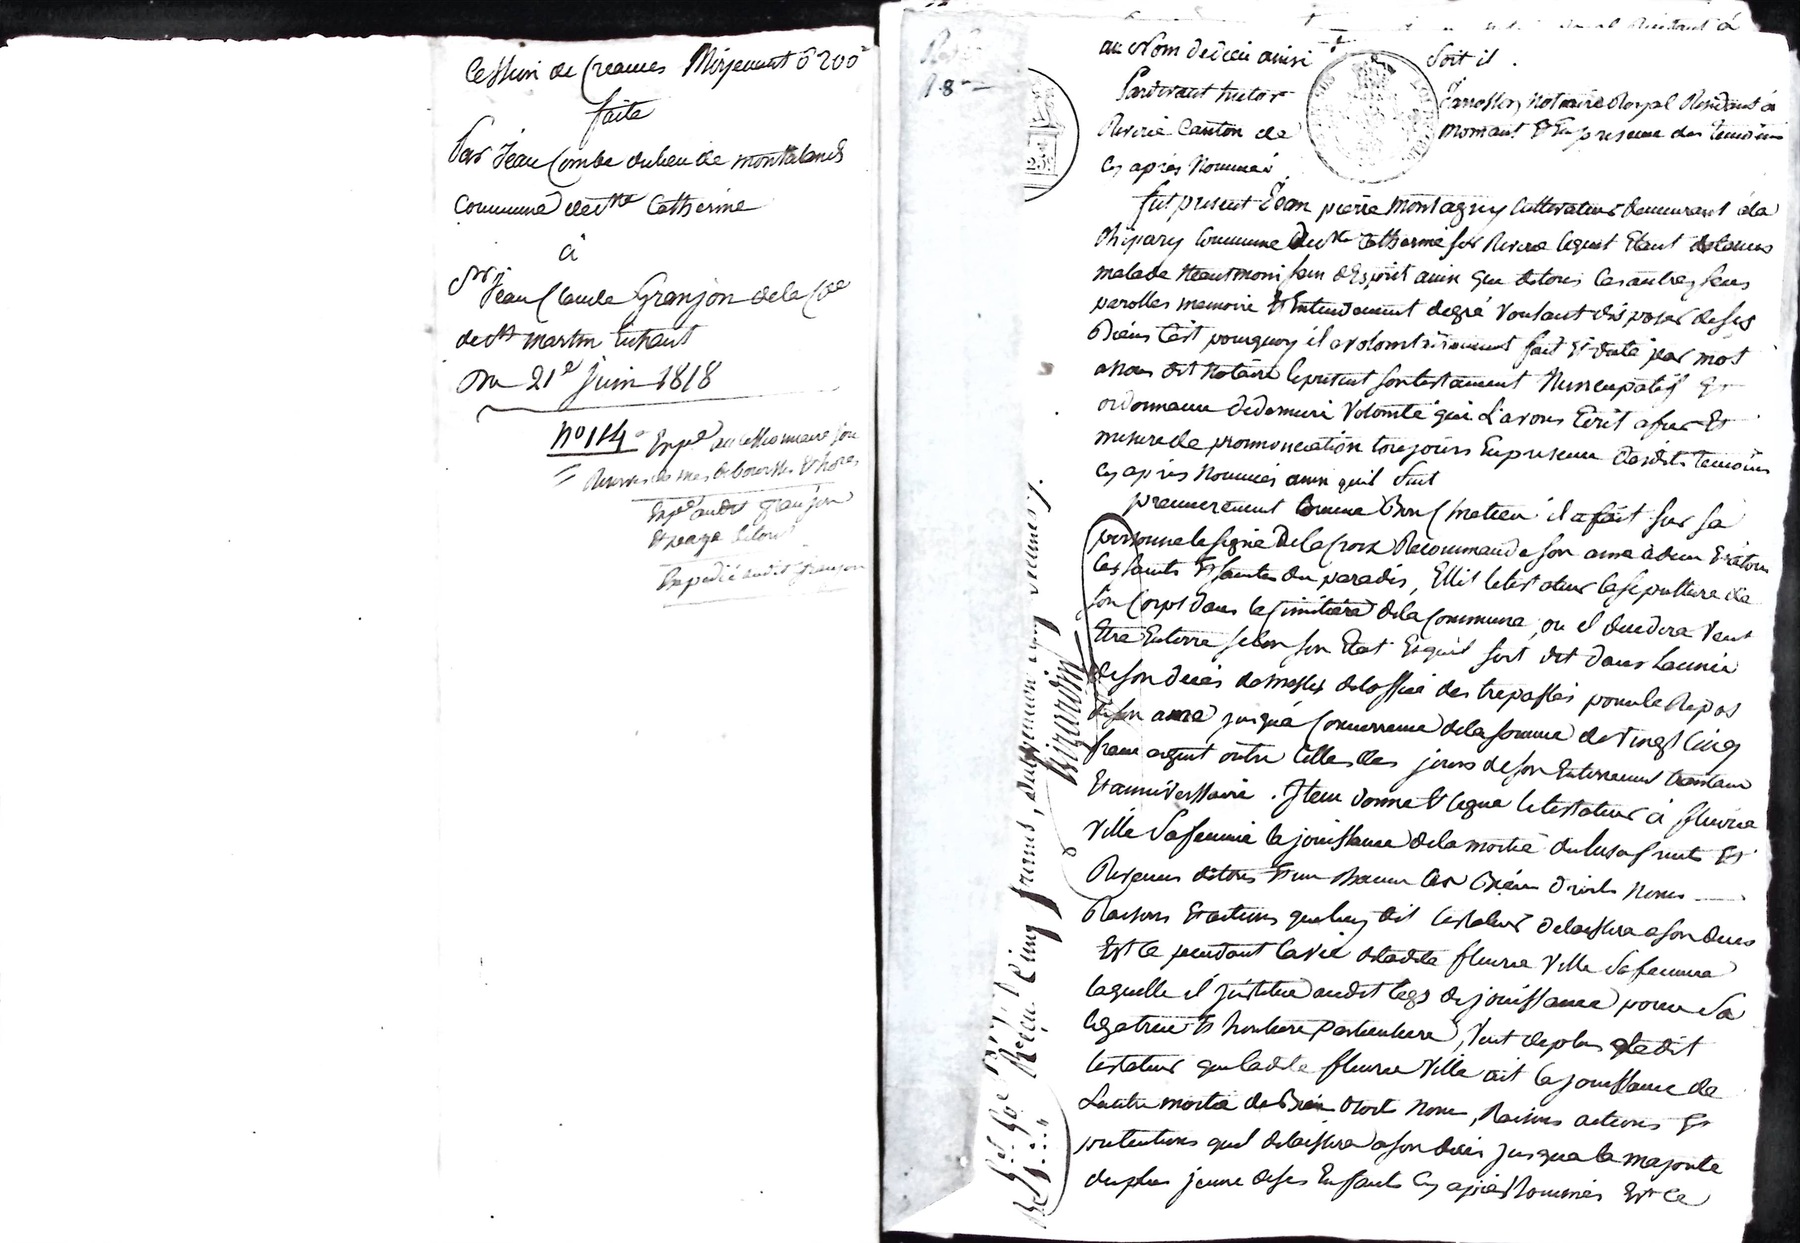 Cession de Creances Moyenant 200
faite
Par Jean Combe du lieu de montaland
Commune de Ste Catherine
à
Sr Jean Claude Granjon de la Cne
de St martin Enhaut
Du 21e juin 1818
No 114 Expé au Cessionnaire sou
Reserve de mes debourses & hores
Expé audit Granjon
et page
Expedié audit Granjon
au Nom de dieu ainsi soit il.
Pardevant victor Notaire Royal Residant à
Riverie Canton de Mornant & En presence des temoins
Cy après Nommés
fut présent Jean pierre Montagny Cultivateur demeurant à la
Chipary Commune de Ste Catherine sur Riverie lequel Etant detenus
malade Neantmoins sain d'Esprit ainsi que de tous les autres sens
parolles memoire & Entendement de gré voulant disposer de ses
Biens C'est pourquoy il a volontairement fait & dicté par mot
a nous dit Notaire le présent son testament Nuncupatif &
ordonnance de derniere volonté que L'avons Ecrit a fur Et
mesure de prononciation toujours En presence desdits temoins
Cy après Nommés ainsi qu'il suit
premierement Comme Bon Chretien il a fait sur sa
personne le signe de la Croix Recommande son ame à dieu & à tous
les saints & saintes du paradis, Elit le testateur la sepulture de
son Corps dans le Cimitiere de la Commune ou il decedera veut
Etre Enterré selon son Etat Et quil soit dit dans Lannée
de son deces de messes de loffice des trepassés pour le Repos
de son ame jusqu'a Concurrence de la somme de vingt Cinq
franc argent outre Celles des jours de son Enterrement trentain
Et anniverssaire. Item donne & legue le testateur à fleurie
Ville Sa femme la jouissance de la moitié de lusufruit &
Revenus de tous Et un chacun les Biens droits Noms
Raisons Et actions que ledit testateur delaissera a son deces
Et Ce pendant la vie de ladite fleurie Ville sa femme
laquelle il Institue audit legs de jouissance pour sa
legatrice & heritiere particuliere, Veut de plus ledit
testateur que ladite fleurie Ville ait la jouissance de
Lautre moitié de Biens droits Noms, Raisons actions &
pretentions quil delaissera a son deces jusqua la majorité
du plus jeune de ses Enfants Cy après Nommés Et Ce
Reçu Cinq francs,
Girardin